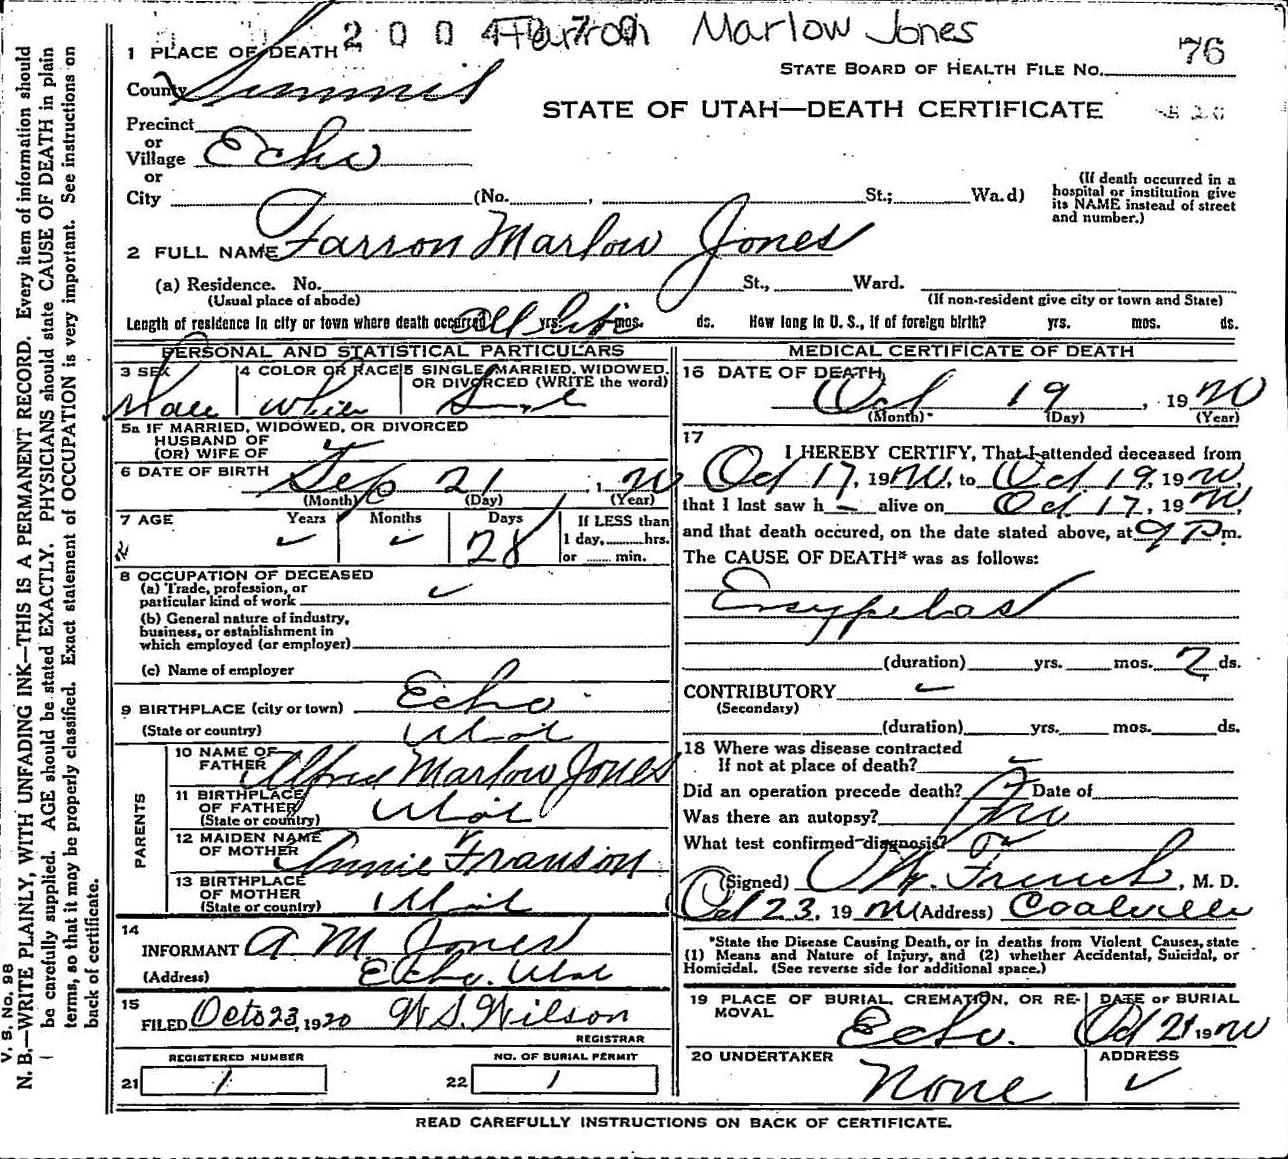 2 0 0 4 Farron Marlow Jones
1 PLACE OF DEATH
STATE BOARD OF HEALTH FILE No. 76
County Summit
STATE OF UTAH—DEATH CERTIFICATE
Precinct
or
Village Echo
or
City (No. , St.; Wa.d)
(If death occurred in a
hospital or institution give
its NAME instead of street
and number.)
2 FULL NAME Farron Marlow Jones
(a) Residence. No. St., Ward.
(Usual place of abode) (If non-resident give city or town and State)
Length of residence in city or town where death occurred All life yrs. mos. ds. How long in U. S., if of foreign birth? yrs. mos. ds.
PERSONAL AND STATISTICAL PARTICULARS
3 SEX 4 COLOR OR RACE 5 SINGLE, MARRIED, WIDOWED,
OR DIVORCED (WRITE the word)
Male White Single
5a IF MARRIED, WIDOWED, OR DIVORCED
HUSBAND OF
(OR) WIFE OF
6 DATE OF BIRTH Sep 21 , 1 20
(Month) (Day) (Year)
7 AGE Years Months Days If LESS than
1 day, hrs.
or min.
28
8 OCCUPATION OF DECEASED
(a) Trade, profession, or
particular kind of work
(b) General nature of industry,
business, or establishment in
which employed (or employer)
(c) Name of employer
9 BIRTHPLACE (city or town) Echo
(State or country) Utah
PARENTS
10 NAME OF
FATHER Alfred Marlow Jones
11 BIRTHPLACE
OF FATHER
(State or country) Utah
12 MAIDEN NAME
OF MOTHER Annie Franson
13 BIRTHPLACE
OF MOTHER
(State or country) Utah
14
INFORMANT A M Jones
(Address) Echo. Utah
15
FILED Octo 23, 1920 W S. Wilson
REGISTRAR
REGISTERED NUMBER NO. OF BURIAL PERMIT
21 1 22 1
MEDICAL CERTIFICATE OF DEATH
16 DATE OF DEATH
Oct 19 , 19 20
(Month) (Day) (Year)
17
I HEREBY CERTIFY, That I attended deceased from
Oct 17, 19 20, to Oct 19, 19 20,
that I last saw h — alive on Oct 17, 19 20,
and that death occured, on the date stated above, at 9 P m.
The CAUSE OF DEATH* was as follows:
Erysypelas
(duration) yrs. mos. 2 ds.
CONTRIBUTORY
(Secondary)
(duration) yrs. mos. ds.
18 Where was disease contracted
If not at place of death?
Did an operation precede death? Date of
Was there an autopsy? no
What test confirmed diagnosis?
(Signed) French, M. D.
Oct 23, 19 20 (Address) Coalville
*State the Disease Causing Death, or in deaths from Violent Causes, state
(1) Means and Nature of Injury, and (2) whether Accidental, Suicidal, or
Homicidal. (See reverse side for additional space.)
19 PLACE OF BURIAL, CREMATION, OR RE- DATE OF BURIAL
MOVAL
Echo. Oct 21 19 20
20 UNDERTAKER ADDRESS
None
READ CAREFULLY INSTRUCTIONS ON BACK OF CERTIFICATE.
V. S. No. 98
N. B.—WRITE PLAINLY, WITH UNFADING INK—THIS IS A PERMANENT RECORD. Every item of information should
be carefully supplied. AGE should be stated EXACTLY. PHYSICIANS should state CAUSE OF DEATH in plain
terms, so that it may be properly classified. Exact statement of OCCUPATION is very important. See instructions on
back of certificate.